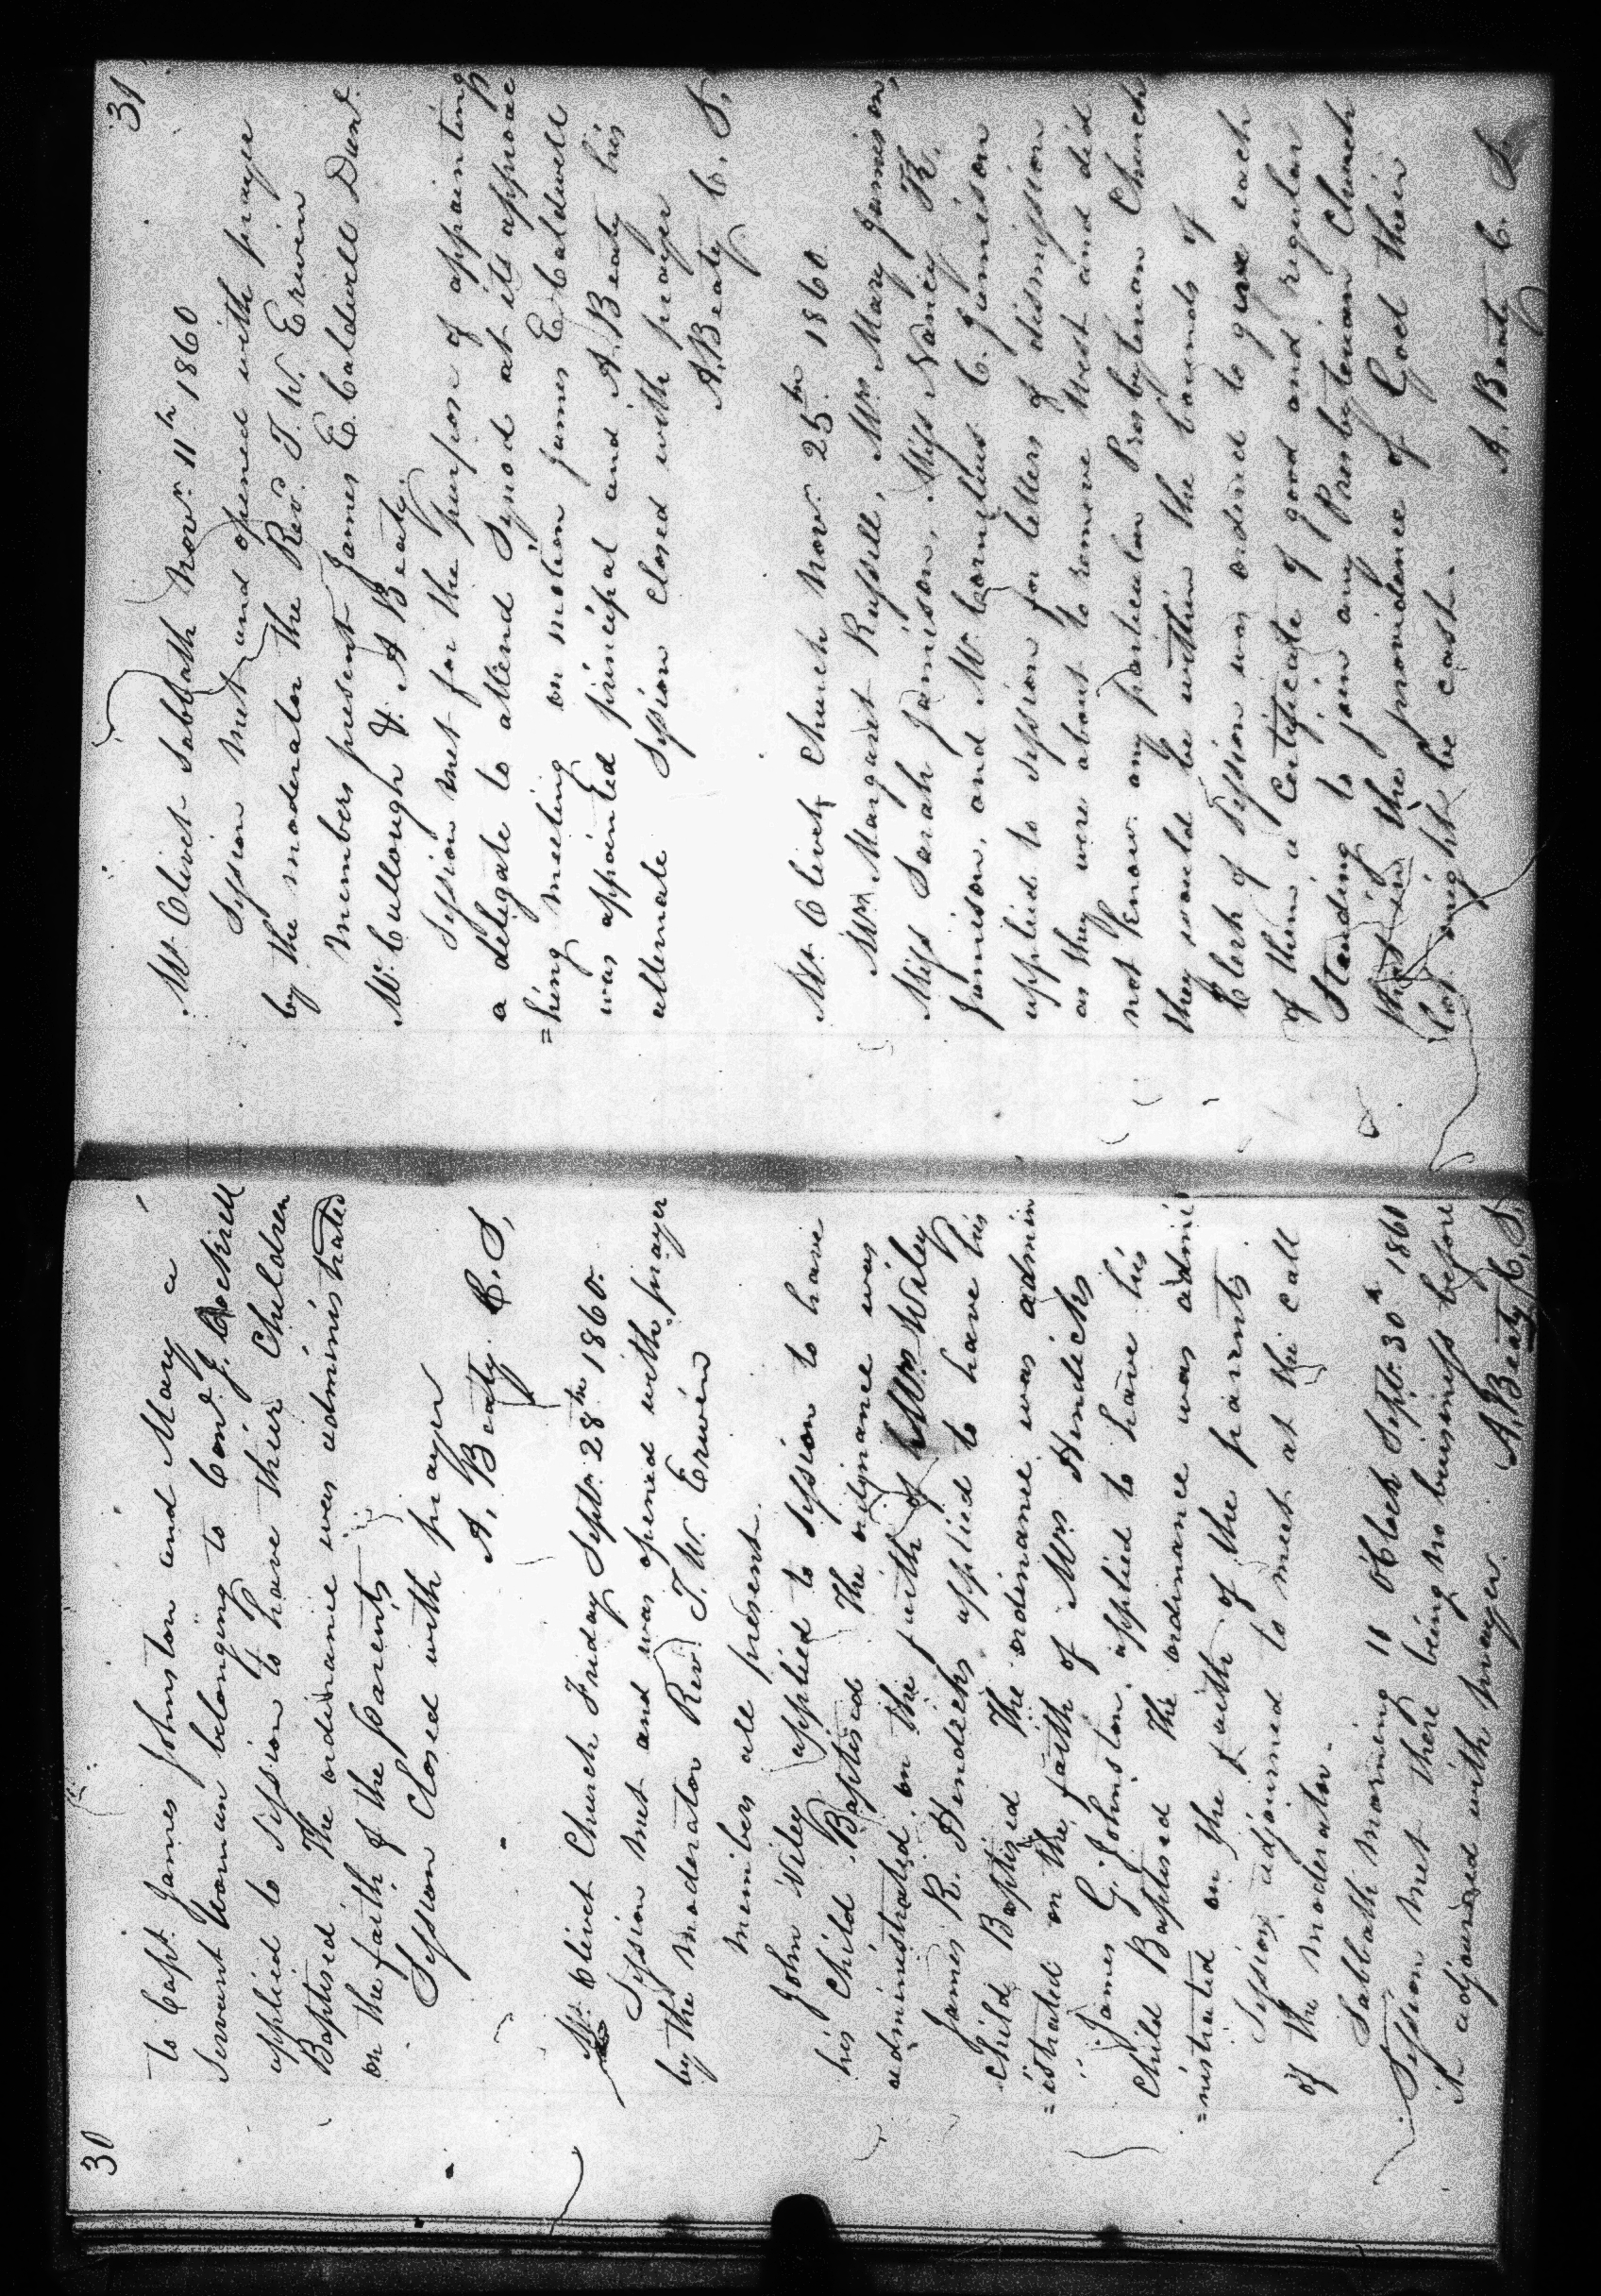 30
to Capt. James Johnston and Mary a
Servant Woman belonging to J. Lockrell
applied to Session to have their Children
Baptised The ordinance was administrated
on the faith of the Parents
Session Closed with prayer
A. Beaty C. S.
Mt. Olivet Church Friday Sept. 28th 1860.
Session met and was opened with prayer
by the Moderator Rev. T. W. Erwin
Members all present.
John Wiley applied to Session to have
his Child Baptised The ordinance was
administrated on the faith of Mrs Wiley
James R. Hindicks applied to have his
Child Baptised The ordinance was admin
=istrated on the faith of Mrs Hindicks
James G. Johnston applied to have his
Child Baptised The ordinance was admi
=nistrated on the faith of the parents
Session adjourned to meet at the call
of the Moderator.
Sabbath morning 10 OClock Sept. 30th 1860
Session met there being no business before
it adjourned with prayer.
A. Beaty C. S.
31
Mt. Olivet Sabbath Novr. 11th 1860
Session met and opened with prayer
by the moderator the Revd. T. W. Erwin
Members present James E. Caldwell Dund.
McCullough & A Beaty.
Session met for the purpose of appointing
a deligate to attend Synod at its approac
=hing meeting on motion James E Caldwell
was appointed principal and A. Beaty his
alternate Session closed with prayer
A. Beaty C. S.
Mt. Olivet Church Nov. 25th 1860
Mrs Margaret Russell, Mrs Mary Jamison,
Miss Sarah Jamison, Miss Nancy R.
Jamison, and Mr Cornelius C. Jamison
applied to Session for letters of dismission
as they were about to remove West and did
not know any particular Presbyterian Church
they would be within the bounds of
Clerk of Session was ordered to give each
of them a Certificate of good and regular
Standing to join any Presbyterian Church
that in the providance of God their
lot might be cast.
A. Beaty C. S.